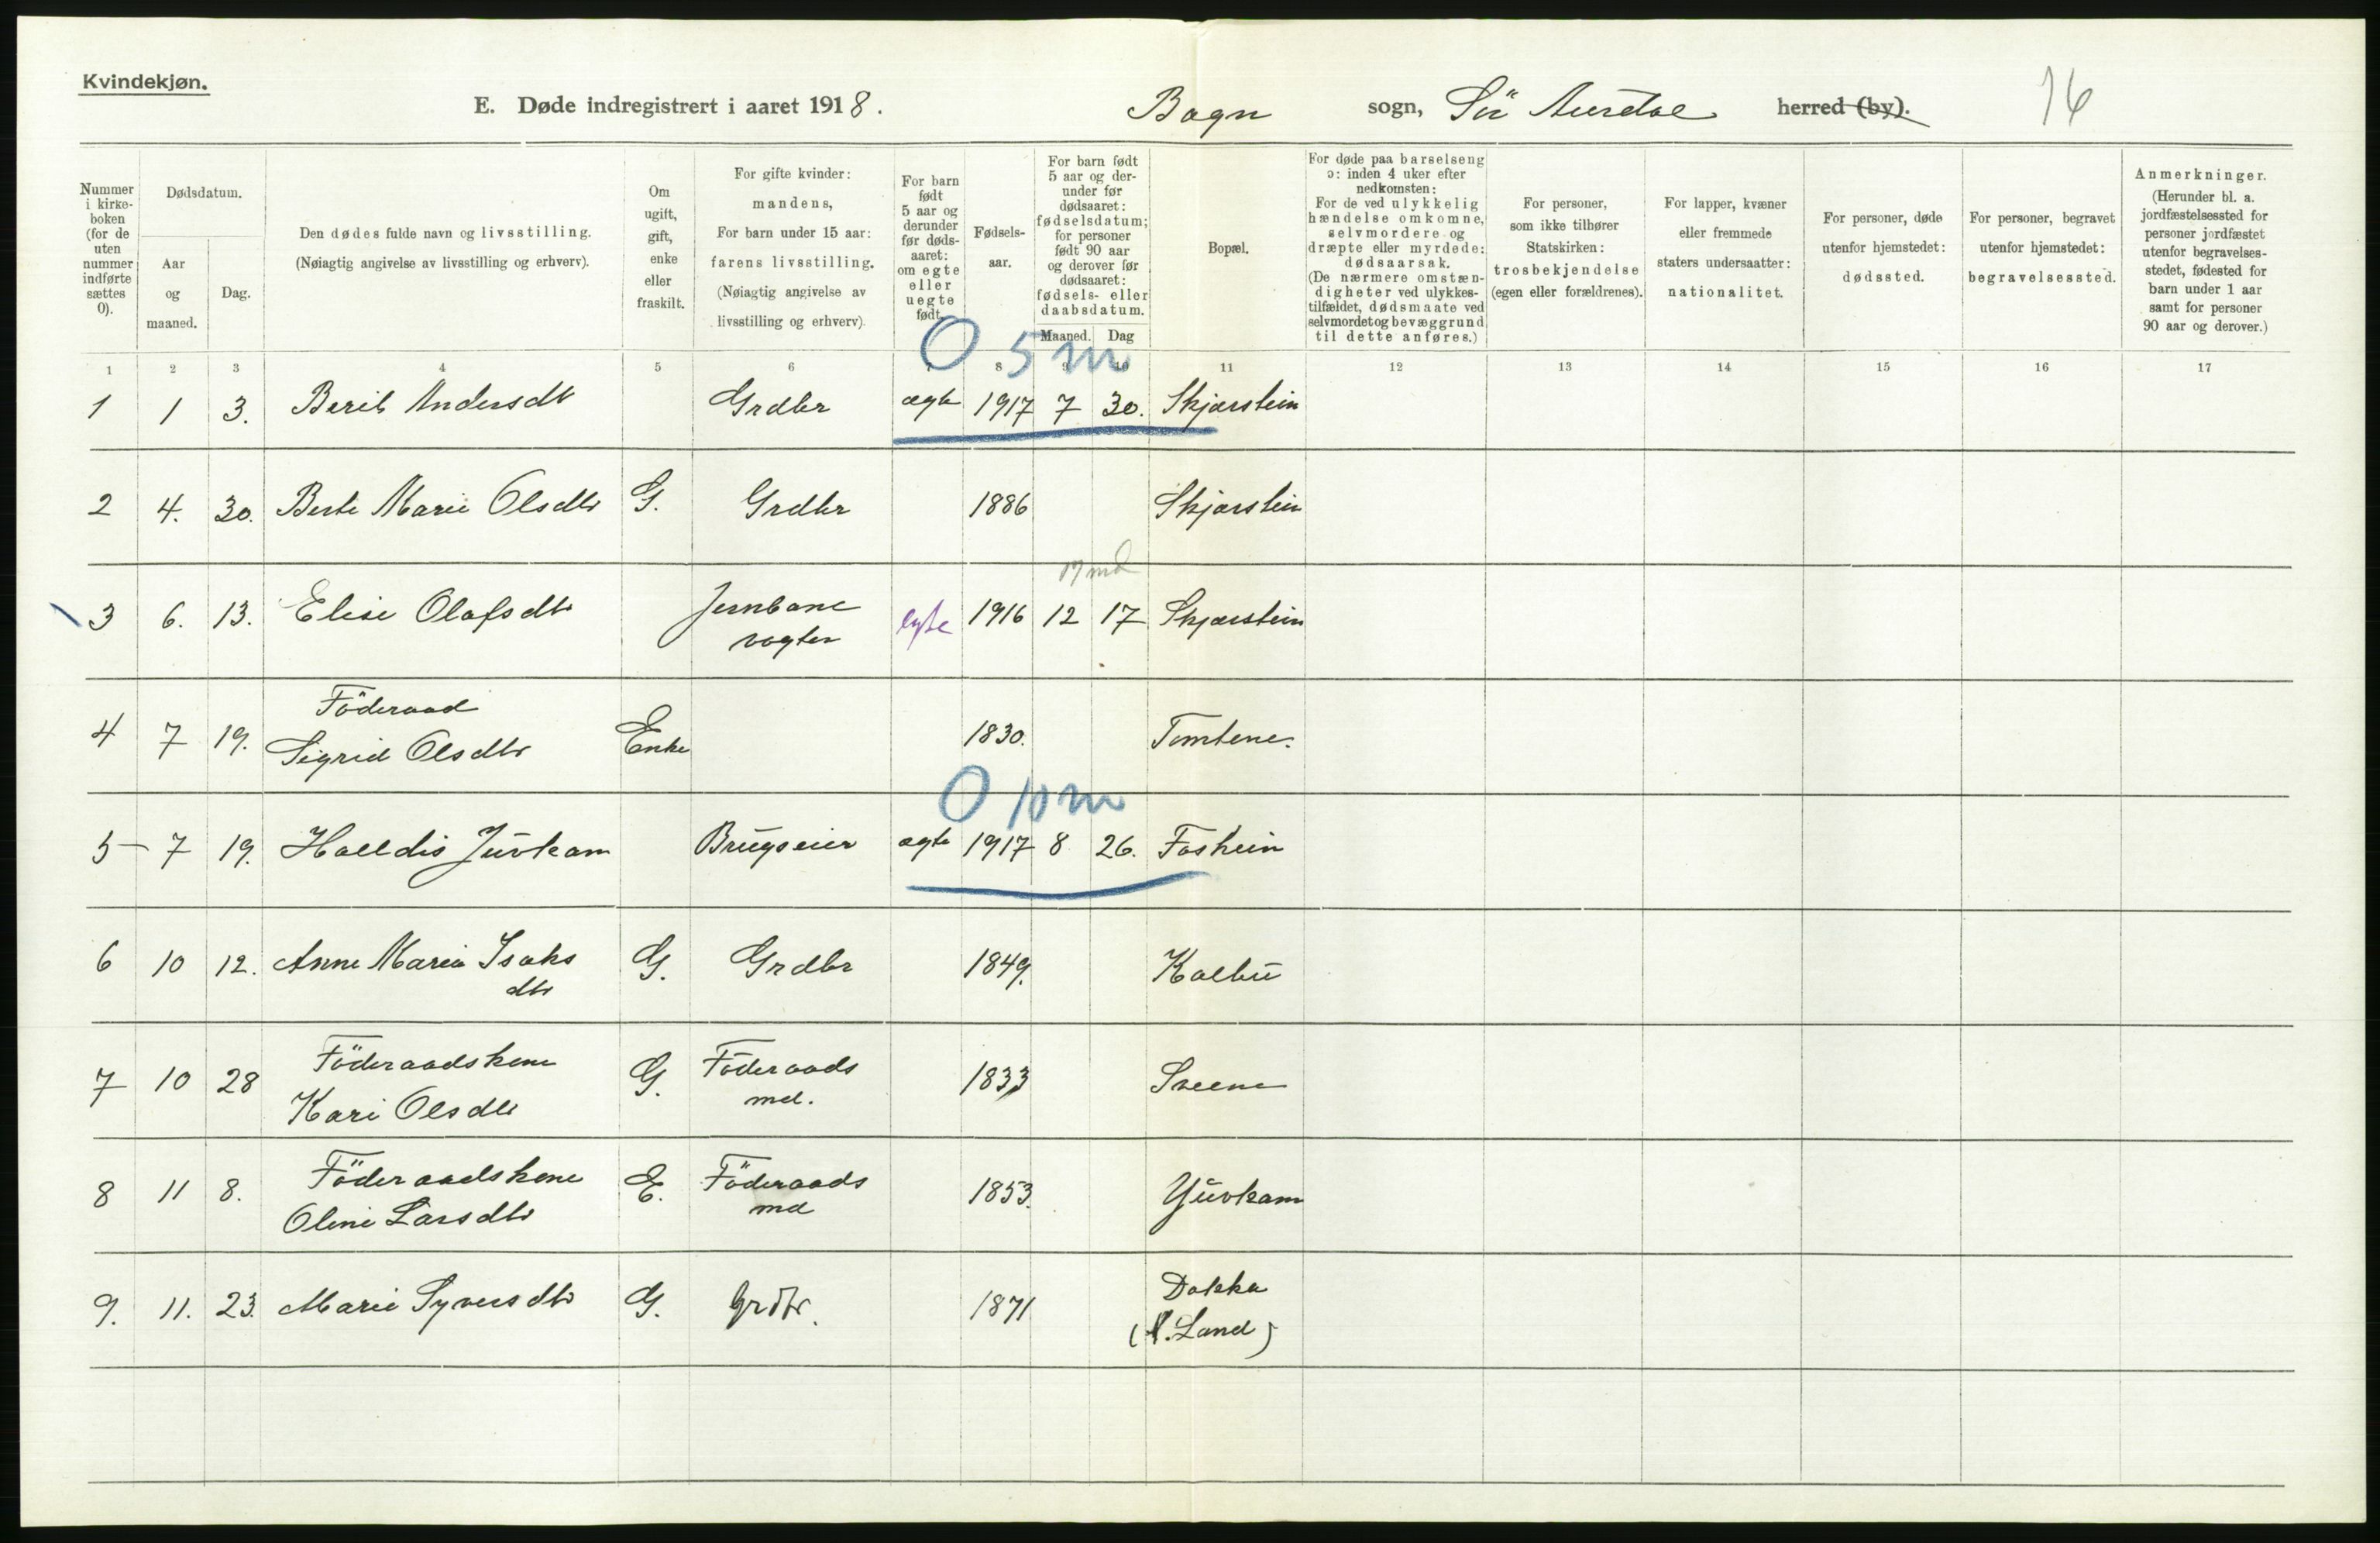 Kvindekjøn.
E. Døde indregistrert i aaret 1918. Bagn sogn, Sör Aurdal herred (by). 16
Nummer i kirke-boken (for de uten nummer indførte sættes 0).
Dødsdatum.
Aar og maaned.
Dag.
Den dødes fulde navn og livsstilling.
(Nøiagtig angivelse av livsstilling og erhverv).
Om ugift, gift, enke eller fraskilt.
For gifte kvinder: mandens,
For barn under 15 aar: farens livsstilling.
(Nøiagtig angivelse av livsstilling og erhverv).
For barn født 5 aar og derunder før døds-aaret: om egte eller uegte født.
Fødsels-aar.
For barn født 5 aar og der-under før dødsaaret: fødselsdatum; for personer født 90 aar og derover før dødsaaret: fødsels- eller daabsdatum.
Maaned. Dag
Bopæl.
For døde paa barselseng ɔ: inden 4 uker efter nedkomsten:
For de ved ulykkelig hændelse omkomne, selvmordere og dræpte eller myrdede: dødsaarsak.
(De nærmere omstæn-digheter ved ulykkes-tilfældet, dødsmaate ved selvmordet og bevæggrund til dette anføres.)
For personer, som ikke tilhører Statskirken: trosbekjendelse (egen eller forældrenes).
For lapper, kvæner eller fremmede staters undersaatter: nationalitet.
For personer, døde utenfor hjemstedet: dødssted.
For personer, begravet utenfor hjemstedet: begravelsessted.
Anmerkninger.
(Herunder bl. a. jordfæstelsessted for personer jordfæstet utenfor begravelses-stedet, fødested for barn under 1 aar samt for personer 90 aar og derover.)
1 2 3 4 5 6 7 8 9 10 11 12 13 14 15 16 17
0 5 m
1 1 3. Berit Andersdtr Grdbr ægte 1917 7 30. Skjærstein
2 4. 30. Berte Marie Olsdtr G. Grdbr 1886 Skjærstein
17 md
3 6. 13. Elise Olafsdtr Jernbane egte 1916 12 17 Skjærstein
vogter
Föderaad
4 7 19. Sigrid Olsdtr Enke 1830. Tomtene.
0 10 m
5 7 19. Halldis Juvkam Brugseier ægte 1917 8 26. Foshein
6 10 12. Anne Marie Isaks G. Grdbr 1849. Kalbu
dtr
Föderaadskone Föderaads
7 10 28 Kari Olsdtr G. md. 1833 Sveene
Föderaadskone Föderaads
8 11 8. Oline Larsdtr E. md 1853. Juvkam
9. 11. 23. Marie Syversdtr G. Grdbr. 1871 Dokka
(N. Land)